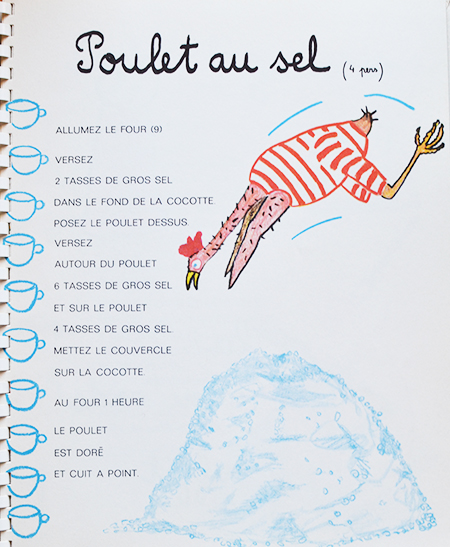 Poulet au sel (4 pers)
ALLUMEZ LE FOUR (9)
VERSEZ
2 TASSES DE GROS SEL
DANS LE FOND DE LA COCOTTE.
POSEZ LE POULET DESSUS.
VERSEZ
AUTOUR DU POULET
6 TASSES DE GROS SEL
ET SUR LE POULET
4 TASSES DE GROS SEL.
METTEZ LE COUVERCLE
SUR LA COCOTTE.
AU FOUR 1 HEURE
LE POULET
EST DORÉ
ET CUIT A POINT.